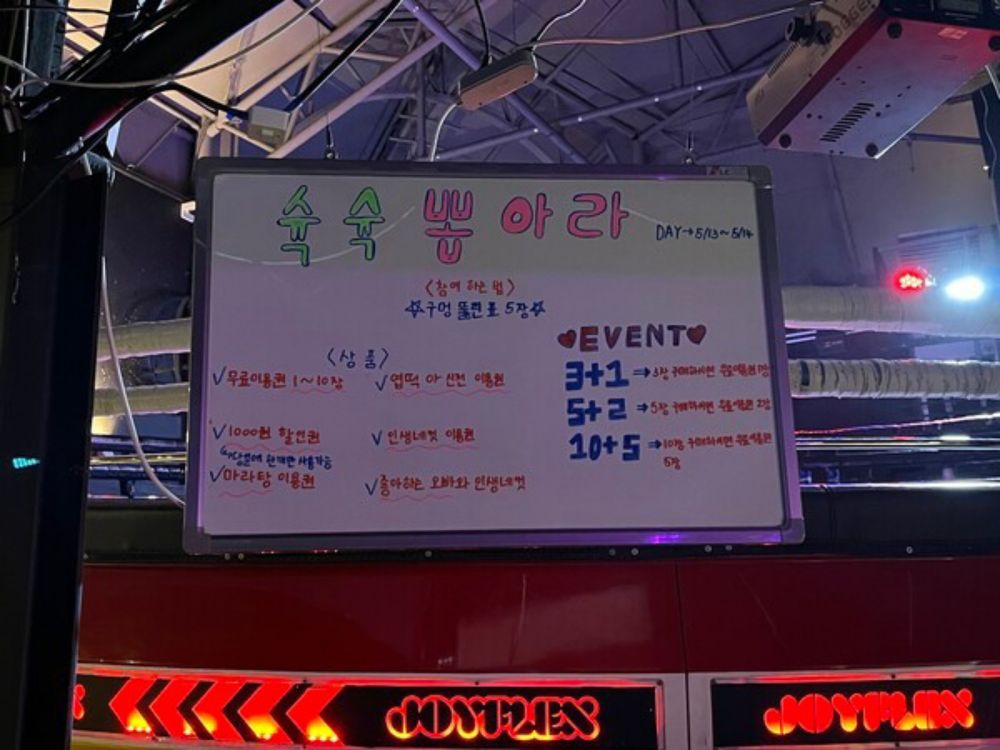 슉슉 뽑아라
DAY→5/13~5/14
<참여 하는 법>
☆구멍 뚫린 표 5장☆
♥EVENT♥
3+1 ⇒ 3장 구매하시면 무료이용권 1장
5+2 ⇒ 5장 구매하시면 무료이용권 2장
10+5 ⇒ 10장 구매하시면 무료이용권
5장
<상품>
✓무료이용권 1~10장
✓엽떡 아 신전 이용권
✓1000원 할인권
✓인생네컷 이용권
✓마라탕 이용권
✓좋아하는 오빠와 인생네컷
JOYFLEX
JOYFLEX